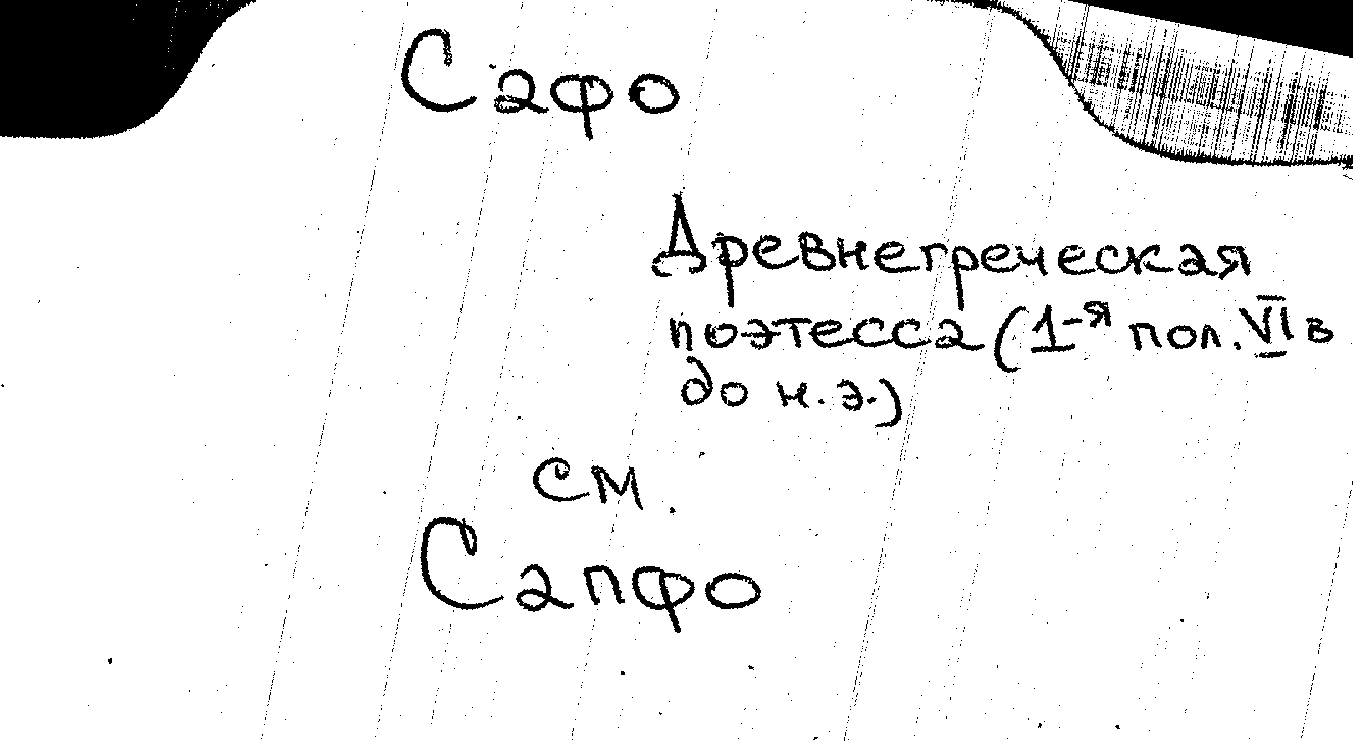 Сафо
Древнегреческая
поэтесса (1-я пол. VI в
до н.э.)
см.
Сапфо